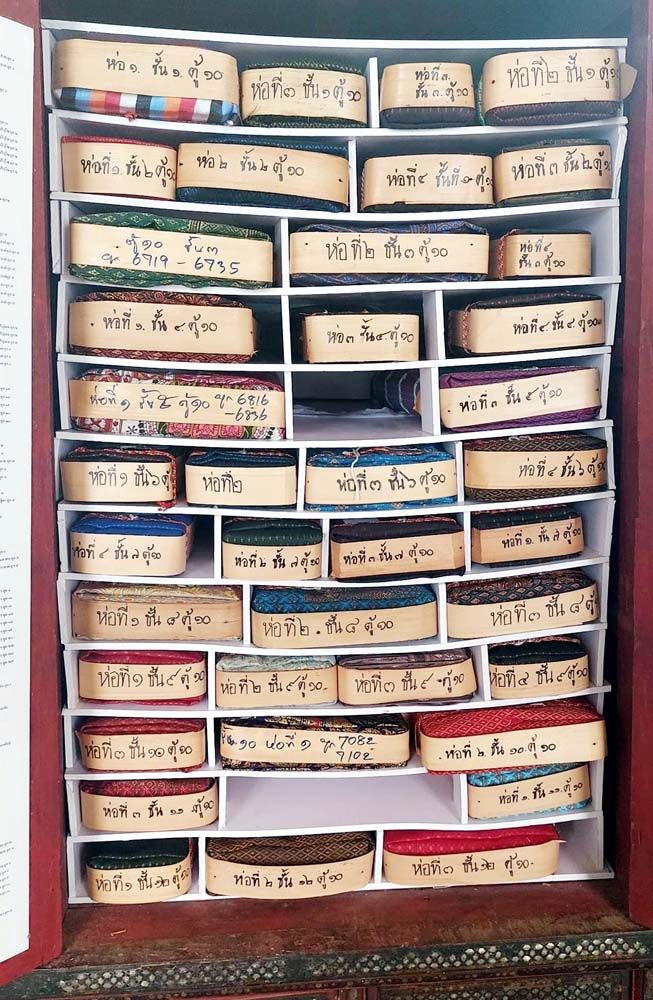 ห่อ ๑. ชั้น ๑. ตู้ ๑๐
ห่อที่ ๓ ชั้น ๑ ตู้ ๑๐
ห่อที่ ๔.
ชั้น ๑. ตู้ ๑๐
ห่อที่ ๒ ชั้น ๑ ตู้ ๑๐
ห่อที่ ๑. ชั้น ๒ ตู้ ๑๐
ห่อ ๒ ชั้น ๒ ตู้ ๑๐
ห่อที่ ๔ ชั้นที่
ห่อที่ ๓ ชั้น ๒ ตู้ ๑๐
ตู้ ๑๐ ชั้น ๓
6719 - 6735
ห่อที่ ๒ ชั้น ๓ ตู้ ๑๐
ห่อที่ ๔
ชั้น ๓ ตู้ ๑๐
ห่อที่ ๑. ชั้น ๔ ตู้ ๑๐
ห่อ ๓ ชั้น ๔ ตู้ ๑๐
ห่อที่ ๔ ชั้น ๔ ตู้ ๑๐
ห่อที่ ๑ ชั้น ๕ ตู้ ๑๐ 6816
-6836
ห่อที่ ๓ ชั้น ๕ ตู้ ๑๐
ห่อที่ ๑ ชั้น ๖ ตู้
ห่อที่ ๒
ห่อที่ ๓ ชั้น ๖ ตู้ ๑๐
ห่อที่ ๔ ชั้น ๖ ตู้ ๑๐
ห่อที่ ๔ ชั้น ๗ ตู้ ๑๐
ห่อที่ ๒ ชั้น ๗ ตู้ ๑๐
ห่อที่ ๓ ชั้น ๗ ตู้ ๑๐
ห่อที่ ๑. ชั้น ๗ ตู้ ๑๐
ห่อที่ ๑ ชั้น ๘ ตู้ ๑๐
ห่อที่ ๒. ชั้น ๘ ตู้ ๑๐
ห่อที่ ๓ ชั้น ๘ ตู้ ๑๐
ห่อที่ ๑ ชั้น ๙ ตู้ ๑๐
ห่อที่ ๒ ชั้น ๙ ตู้ ๑๐
ห่อที่ ๓ ชั้น ๙ ตู้ ๑๐
ห่อที่ ๔ ชั้น ๙ ตู้ ๑๐
ห่อที่ ๓ ชั้น ๑๑ ตู้ ๑๐
๑๐ ห่อที่ ๑ 7082
7102
ห่อที่ ๒. ชั้น ๑๐. ตู้ ๑๐
ห่อที่ ๓ ชั้น ๑๑ ตู้ ๑๐
ห่อที่ ๑. ชั้น ๑๑. ตู้ ๑๐
ห่อที่ ๑ ชั้น ๑๒ ตู้ ๑๐
ห่อที่ ๒ ชั้น ๑๒ ตู้ ๑๐
ห่อที่ ๓ ชั้น ๑๒ ตู้ ๑๐